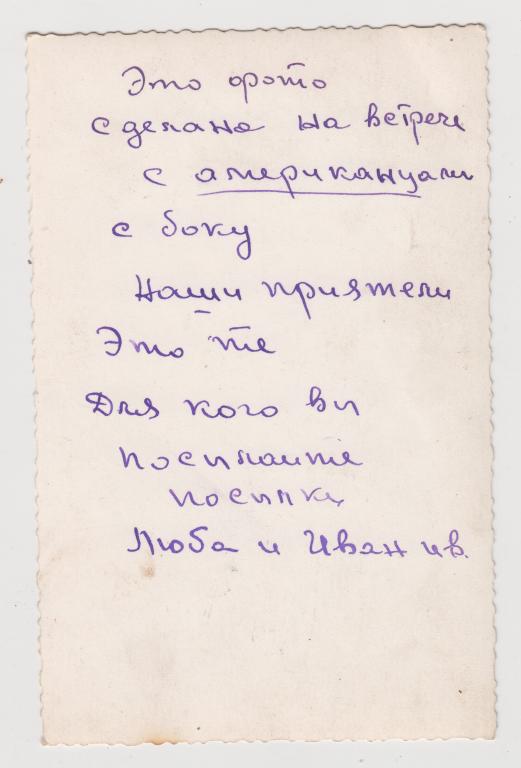 Это фото
сделано на встрече
с американцами
с боку
Наши приятели
Это те
Для кого вы
посылаите
посылки
Люба и Иван ив.